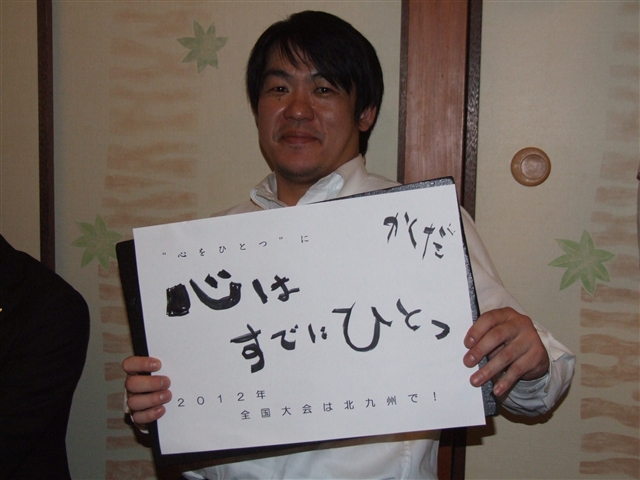 "心をひとつ"に
かくだ
心は
すでにひとつ
2012年
全国大会は北九州で!